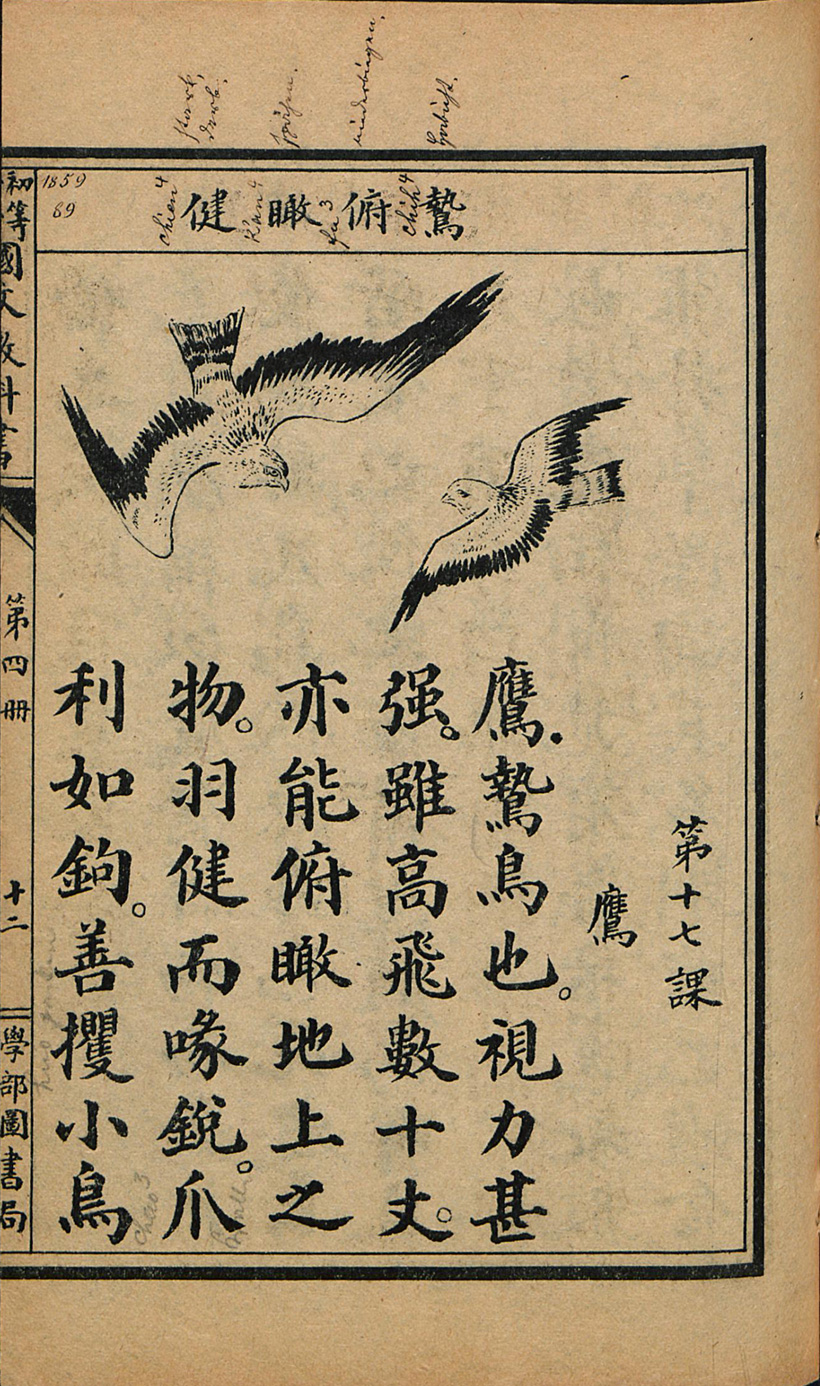 鷙 俯 瞰 健
chih4
fu3
K'an4
chien4
stark,
derb.
1859
69
第十七課
鷹
鷹．鷙鳥也。視力甚
强。雖高飛數十丈。
亦能俯瞰地上之
物。羽健而喙銳。爪
利如鉤。善攫小鳥
chao3
初等國文教科書
第四册
十二
學部圖書局